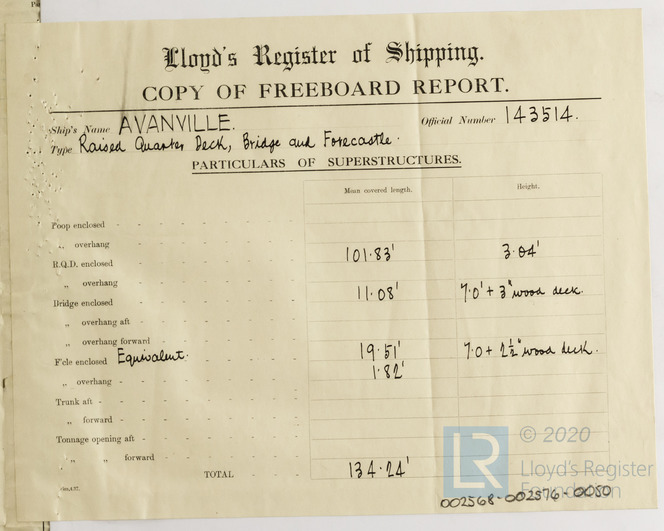 Lloyd's Register of Shipping.
COPY OF FREEBOARD REPORT.
Ship's Name AVANVILLE. Official Number 143514.
Type Raised Quarter Deck, Bridge and Forecastle.
PARTICULARS OF SUPERSTRUCTURES.
Mean covered length. Height.
Poop enclosed
„ overhang
R.Q.D. enclosed 101.83' 3.04'
„ overhang
Bridge enclosed 11.08' 7.0' + 3" wood deck.
„ overhang aft
„ overhang forward
F'cle enclosed Equivalent. 19.51' 7.0 + 2½" wood deck.
„ overhang 1.82'
Trunk aft
„ forward
Tonnage opening aft
„ „ forward
TOTAL 134.24'
LR © 2020
Lloyd's Register
Foundation
002568-002576-0050